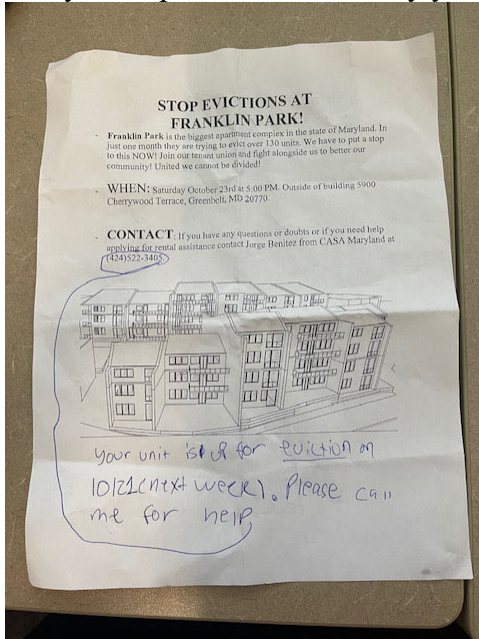 STOP EVICTIONS AT
FRANKLIN PARK!
- Franklin Park is the biggest apartment complex in the state of Maryland. In
just one month they are trying to evict over 130 units. We have to put a stop
to this NOW! Join our tenant union and fight alongside us to better our
community! United we cannot be divided!
- WHEN: Saturday October 23rd at 5:00 PM. Outside of building 5900
Cherrywood Terrace, Greenbelt, MD 20770.
- CONTACT: If you have any questions or doubts or if you need help
applying for rental assistance contact Jorge Benitez from CASA Maryland at
(424)522-3405
your unit is up for eviction on
10/21(next week). Please call
me for help